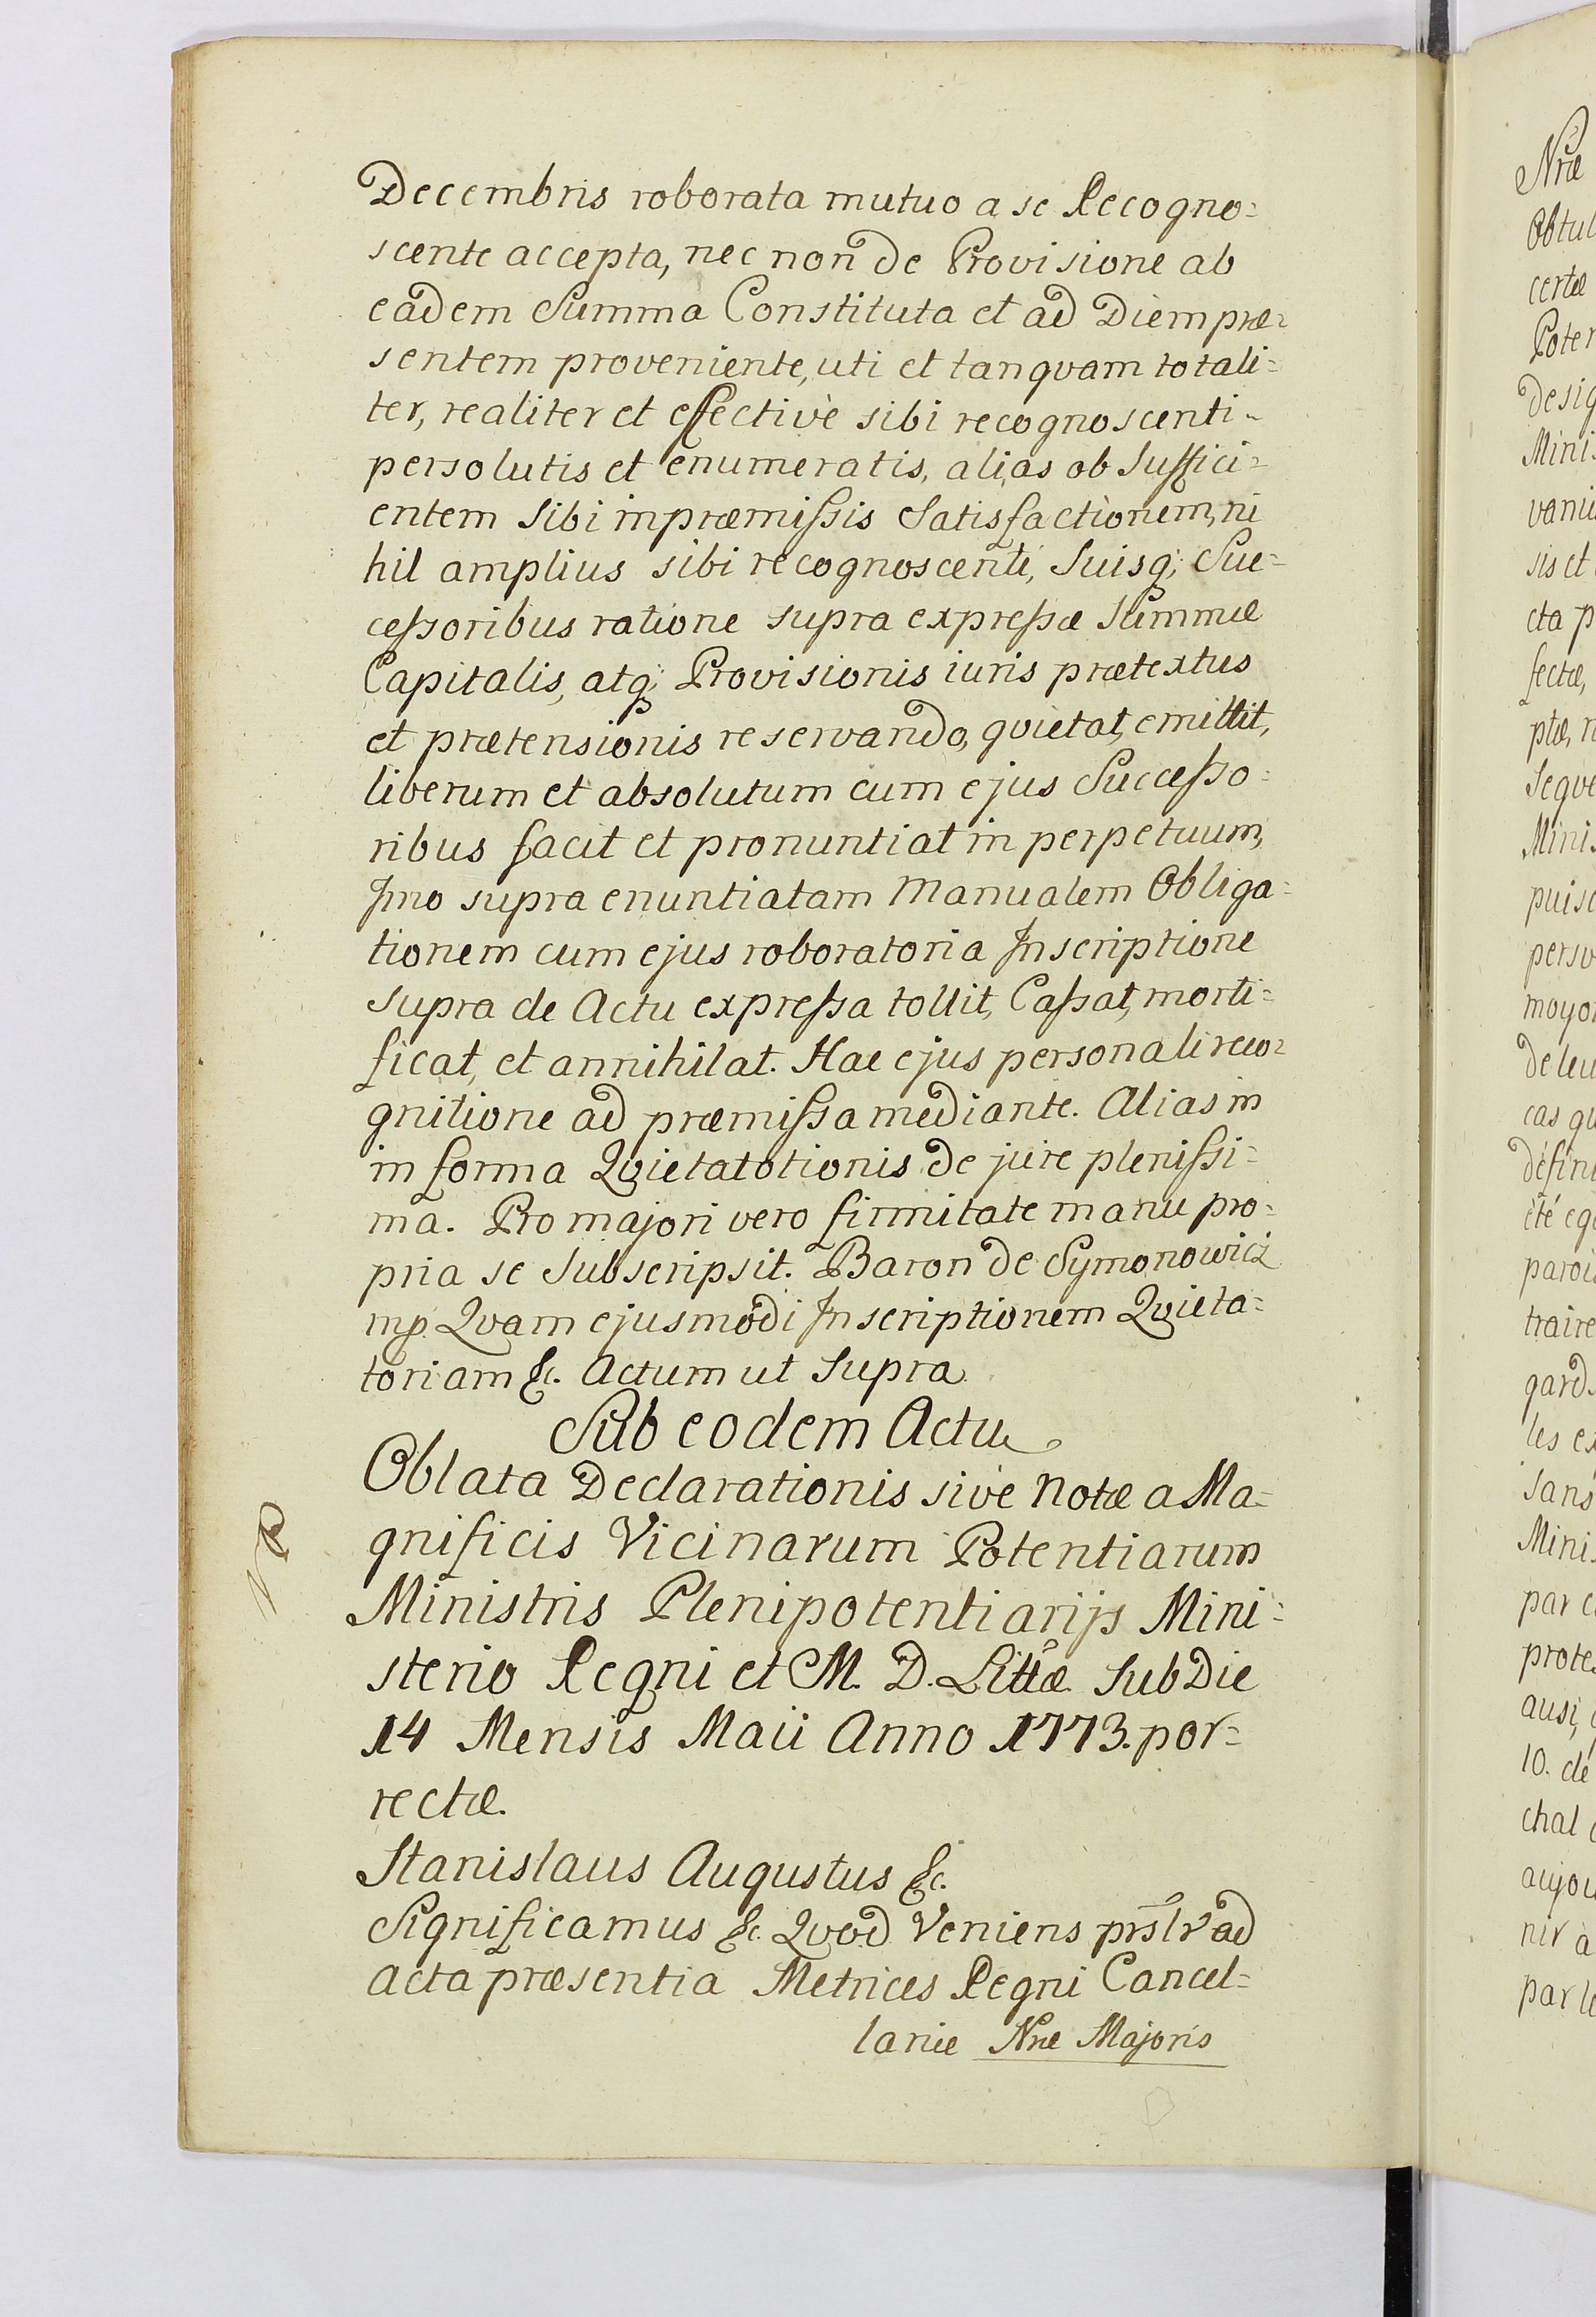 Decembris roborata mutuo a se Recogno=
scente accepta, nec non de Provisione ab
eadem Summa Constituta et ad Diem præ=
sentem proveniente, uti et tanqvam totali=
ter, realiter et effective sibi recognoscenti-
persolutis et enumeratis, alias ob Suffici=
entem Sibi in præmissis Satisfactionem, ni
hil amplius sibi recognoscenti, Suisq; Suc=
cessoribus ratione supra expressæ Summæ
Capitalis, atq; Provisionis iuris prætextus
et prætensionis reservando, qvietat, emittit,
liberum et absolutum cum ejus Successo=
ribus facit et pronuntiat in perpetuum,
Imo supra enuntiatam Manualem Obliga=
tionem cum ejus roboratoria Inscriptione
supra de Actu expressa tollit, Cassat, morti=
ficat, et annihilat. Hac ejus personali reco=
gnitione ad præmissa mediante. Alias in
in forma Qvietatotionis de jure plenissi=
ma. Pro majori vero firmitate manu pro=
pria se Subscripsit. Baron de Symonowicz
mp. Qvam ejusmodi Inscriptionem Qvieta=
toriam &c. Actum ut Supra
Sub eodem Actu
Oblata Declarationis sive Notæ a Ma=
gnificis Vicinarum Potentiarum
Ministris Plenipotentiarijs Mini=
sterio Regni et M. D. Littæ Sub Die
14 Mensis Maii Anno 1773. por=
rectæ.
Stanislaus Augustus &c.
Significamus &c. Qvod Veniens prslr ad
acta præsentia Metrices Regni Cancel=
lariæ Nræ Majoris
Nræ
Obtul
certæ
Poter
desig
Minis
vaniæ
sis et
cta p
fectæ,
ptæ, n
Seqve
Minis
puisc
persv
moyo
de leu
cas qu
défin
été eq
parois
traire
gard
les ex
sans
Minis
par c
prote
ausi,
10. de
chal
aujou
nir à
par le